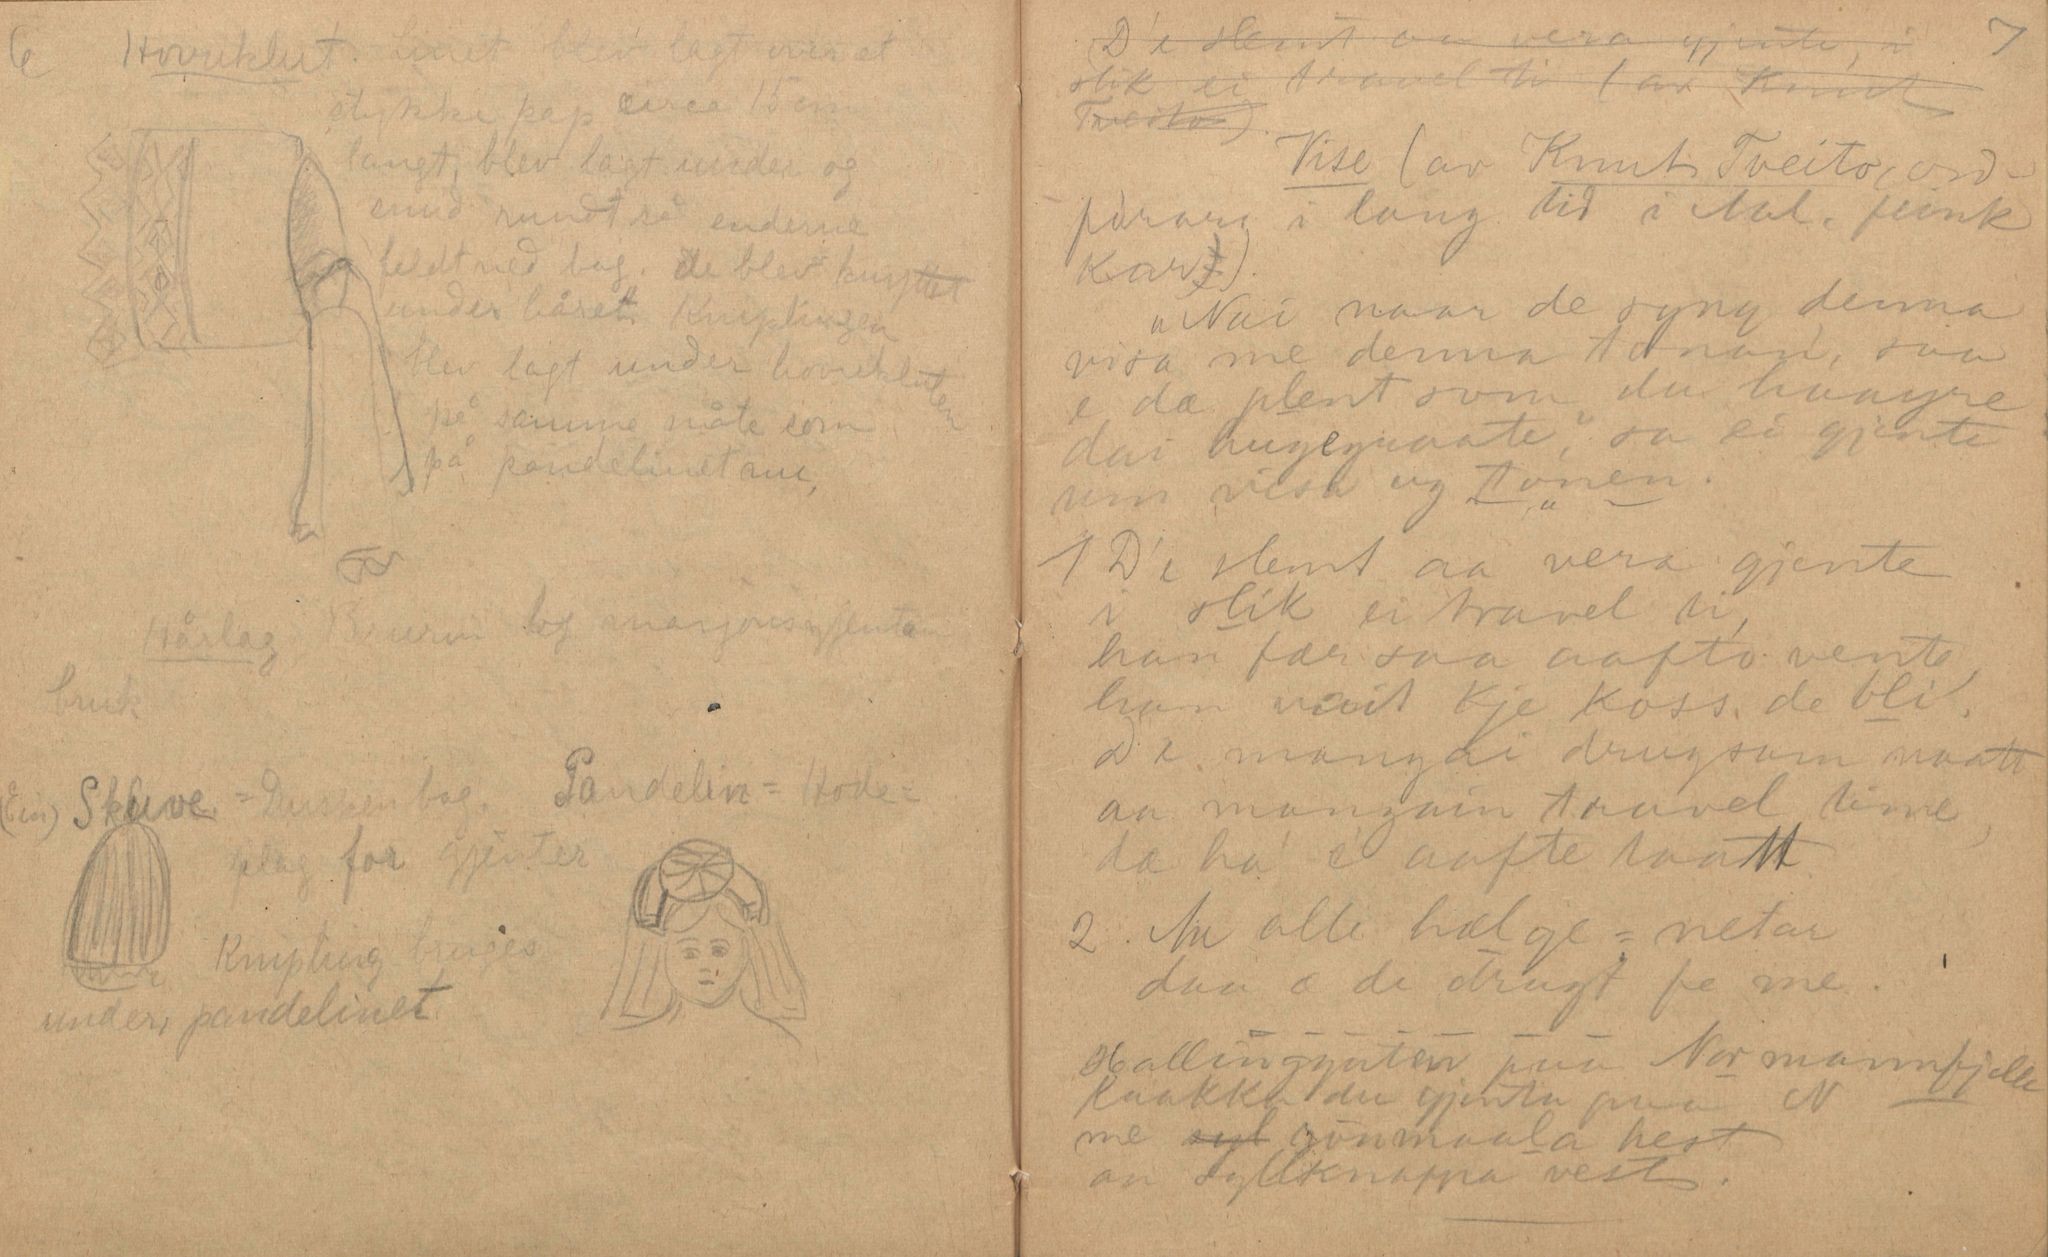 6
Hovuklut. Linet blev lagt over et
stykke pap circa 15 cm
langt, blev lagt under og
snud rundt så enderne
feldt ned bag. de blev knyttet
under håret. Kniplingen
blev lagt under hovuklutten
på samme måte som
på pandelinet
Hårlag Brurin og
bruk
(Ein) Skuve = Dusken bag.
Pandelin = Hode=
plag for gjenter
Knipling bruges
under pandelinet
7
D'e slemt aa vera gjente, i
slik ei travel ti (av Knut
Tveito).
Vise (av Knut Tveito, ord-
førara i lang tid i Aal, feink
Kar).
"Nai naar de syng denna
visa me denna tonan, saa
e dæ plent som du haayre
dai augegraate", sa ei gjente
um visa og tonen.
1 D'e slemt aa vera gjente
i slik ei travel ti,
han fær saa aafto vente,
han vait kje koss de bli.
D'e mangai drugsam naatt
aa mangain travel time,
dæ ha e aafte taatt
2. Au alle hælge=netar
daa æ de drugt fe me.
Hallinggjenten paa Normannfjelle
Raakka du gjenta paa N
me syl gönmaala hest
aa syllknappa vest.